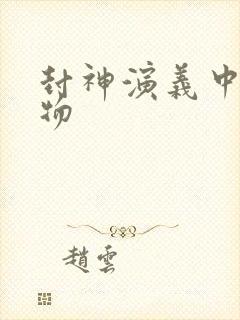 封神演義中
物
趙雲